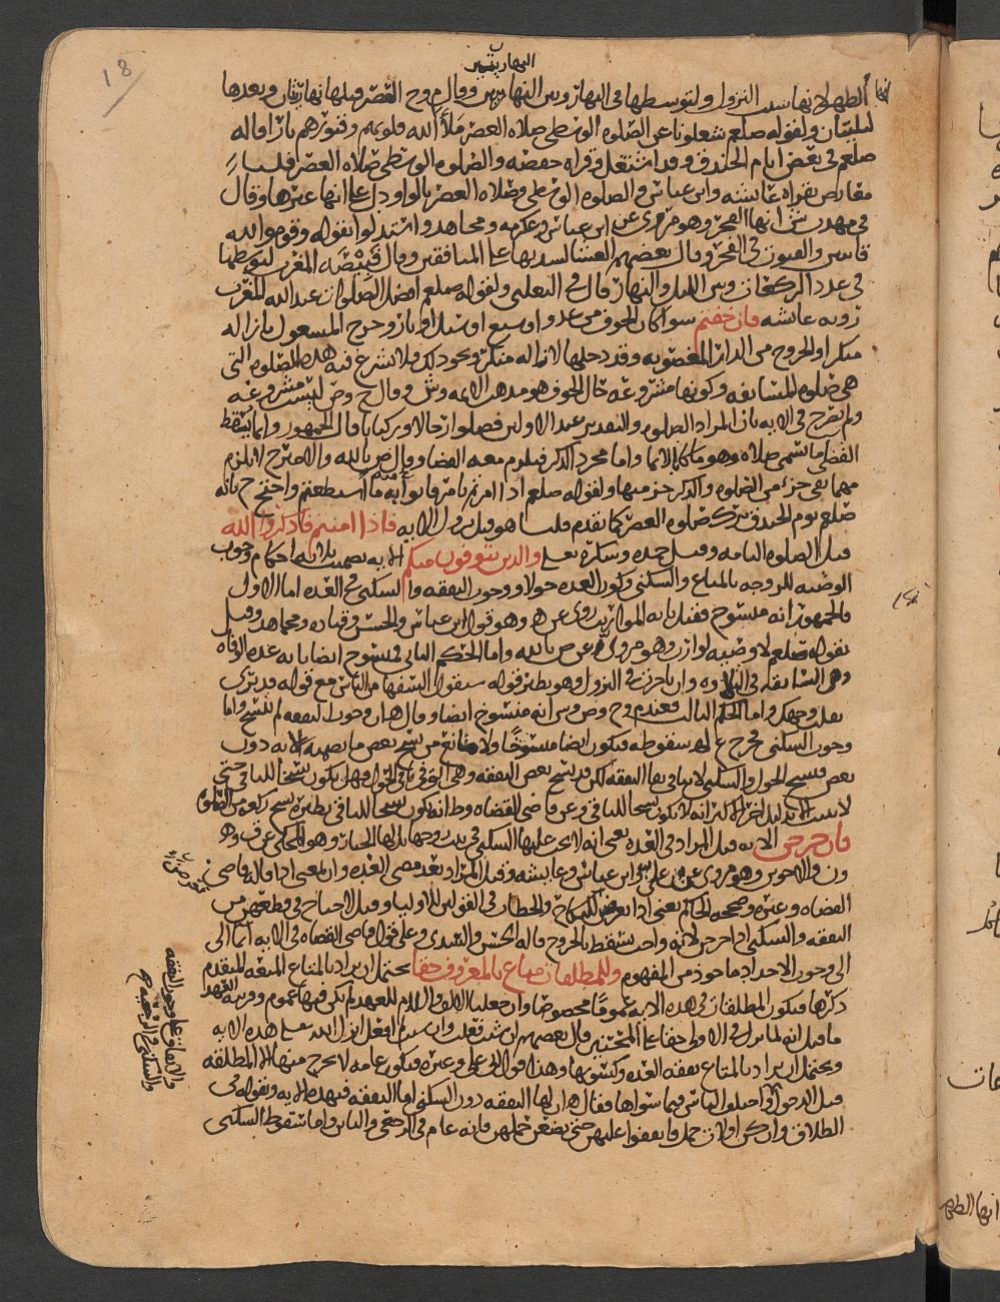 18
النهاريتين
انها الظهر لانها سبب النزول ولتوسطها في النهار وبين النهاريتين وقال م وح العصر قبلها نهاريتان وبعدها
ليليتان ولقوله صلعم شغلونا عن الصلوه الوسطى صلاه العصر ملأ الله قلوبهم وقبورهم نارا قاله
صلعم في بعض ايام الخندق وقد اشتغل وقراه حفصه والصلوه الوسطى صلاه العصر قلنا
معارض بقراه عائشه وابن عباس والصلوه الوسطى وصلاه العصر بالواو دل على انها غيرها وقال
في مهدي ش انها الفجر وهو مروي عن ابن عباس وعكرمه ومجاهد واستدلوا بقوله وقوموا لله
قانتين والقنوت في الفجر وقال بعضهم العشا لشدتها على المنافقين وقال قبيصه المغرب لتوسطها
في عدد الركعات وبين الليل والنهار قال في الثعلبي ولقوله صلعم افضل الصلوات عند الله المغرب
روته عائشه فان خفتم سوا كان الخوف من عدو او سبع او سيل او نار وخرج المشغول بازاله
منكر او الخروج من الدار المغصوبه وقد دخلها لازاله منكر ونحو ذلك فلا تشرع فيه هذه الصلوه التي
هي صلوه المسايفه وكونها مشروعه حال الخوف هو مذهب الايمه وش وقال ح وص ليست مشروعه
ولم تصرح في الايه بان المراد الصلوه والتقدير عند الاولين فصلوا رجالا او ركبانا قال الجمهور وانما يسقط
القضا ما تسمى صلاه وهو ما كان بالايما واما مجرد الذكر فيلزم معه القضا وقال ض بالله والامير ح لا يلزم
مهما بقي جزء من الصلوه والذكر جز منها ولقوله صلعم اذا امرتم بامر فاتوا به ما استطعتم واحتج ح بانه
صلعم يوم الخندق ترك صلوه العصر كما تقدم قلنا هو قبل نزول الايه فاذا امنتم فاذكروا الله
قيل الصلوه التامه وقيل حمده وشكره تعلى والذين يتوفون منكم الايه تضمنت ثلاثه احكام وجوب
الوصيه للزوجه بالمتاع والسكنى وكون العده حولا ووجوب النفقه والسكنى في العده اما الاول
فالجمهور انه منسوخ فقيل بايه المواريث روي عن ه وهو قول ابن عباس والحسن وقتاده ومجاهد وقيل
بقوله صلعم لا وصيه لوارث وهو مروي عن ض بالله واما الحكم الثاني فمنسوخ ايضا بايه عده الوفاه
وهي السابقه في التلاوه وان تاخرت في النزول وهو نظير قوله سيقول السفها من الناس مع قوله قد نرى
تقلب وجهك واما الحكم الثالث فعند م وح وص وس انه منسوخ ايضا وقال هاد وجوب النفقه لم ينسخ واما
وجوب السكنى فخرج ع له سقوطه فيكون ايضا منسوخا ولا مانع من نسخ بعض ما تضمنته الايه دون
بعض فنسخ الحول والسكنى لا ينافي بقا النفقه لكن قد نسخ بعض النفقه وهي الزوايد على الحول فهل يكون نسخا للباقي حتى
لا يثبت الا بدليل اخر الاكثر انه لا يكون نسخا للباقي وعن قاضي القضاه وط انه يكون نسخا للباقي نظيره نسخ ركعه من الصلوه
فان خرجن الايه قيل المراد في العده يعني انه لا يجب عليها السكنى في بيت زوجها بل لها الخيار وهو المحكي عن ق وه
ون والاخوين وهو مروي عن علي وابن عباس وعايشه وقيل المراد بعد مضي العده والمعنى اذا قاله قاضي
القضاه وغيره وصححه الحاكم يعني اذا تعرضن للنكاح والخطاب في القولين للاوليا وقيل لا جناح في قطعهن من
النفقه والسكنى اذا خرجن لانه واحد يسقط بالخروج قاله الحسن والسدي وعلى قول قاضي القضاه في الايه ايما الى
الى وجوب الاحداد ماخوذ من المفهوم وللمطلقات متاع بالمعروف حقا يحتمل ان يراد بالمتاع المتعه المتقدم
ذكرها فيكون المطلقات في هذه الايه عموما مخصوصا وان جعلنا الالف واللام للعهد لم يكن فيها عموم وقرينه العهد
ما قيل انه لما نزل في الاولى حقا على المحسنين قال بعضهم ان شئت فعلت وان شئت لم افعل انزل الله تعلى هذه الايه
ويحتمل ان يراد بالمتاع نفقه العده وكسوتها وهذا قول ابو علي وغيره فتكون عامه لا تخرج منها الا المطلقه
قبل الدخول واختلف الناس فيما سواها فقال هاد لها النفقه دون السكنى اما النفقه فبهذه الايه وبقوله في
الطلاق وان كن اولات حمل فانفقوا عليهن حتى يضعن حملهن فانه عام في الرجعي والباين واما سقوط السكنى
والاتفاق على وجوب النفقه
والسكنى في الرجعيه ح